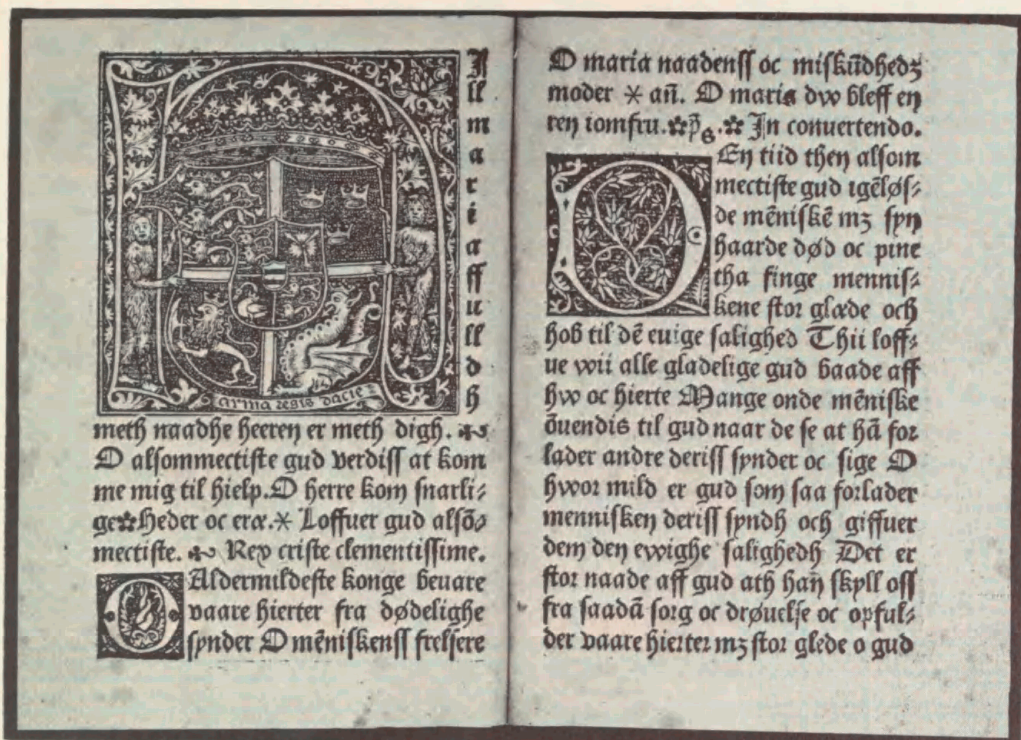 ll
m
a
r
i
a
ff
u
ll
d
h
arma regis dacie
meth naadhe heeren er meth digh.
O alsommectiste gud verdiss at kom
me mig til hielp. O herre kom snarli⸗
ge✿Heder oc eræ.* Loffuer gud alsō⸗
mectiste. Rex criste clementissime.
O Aldermildeste konge beuare
vaare hierter fra dødelighe
synder O mēniskenss frelsere
O maria naadenss oc miskūdhedz
moder * an̄. O maria dvo bleff en
ren iomfru.✿p̄s.✿ In conuertendo.
DEn tiid then alsom
mectiste gud igēløs⸗
de mēniskē mz syn
haarde død oc pine
tha finge mennis⸗
kene stor glæde och
hob til dē euige salighed Thii loff⸗
ue wii alle gladelige gud baade aff
hw oc hierte Mange onde mēniske
ōuendis til gud naar de se at hā for
lader andre deriss synder oc sige O
hwor mild er gud som saa forlader
mennisken deriss syndh och giffuer
dem den ewighe salighedh Det er
stor naade aff gud ath han skyll oss
fra saadā sorg oc drøuelse oc opful⸗
der vaare hierter mz stor glede o gud